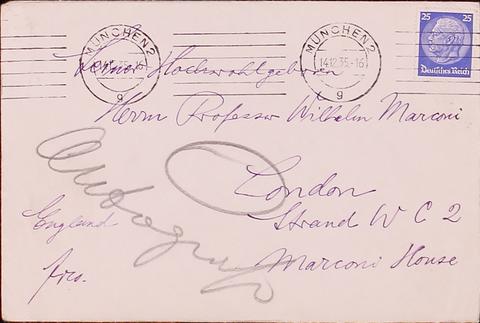 MÜNCHEN 2
14.12.35.-16
9
MÜNCHEN 2
14.12.35.-16
9
25 25
Deutsches Reich
Seiner Hochwohlgeboren
Herrn Professor Wilhelm Marconi
London
Strand W C 2
Marconi House
England
frco.
Autograf